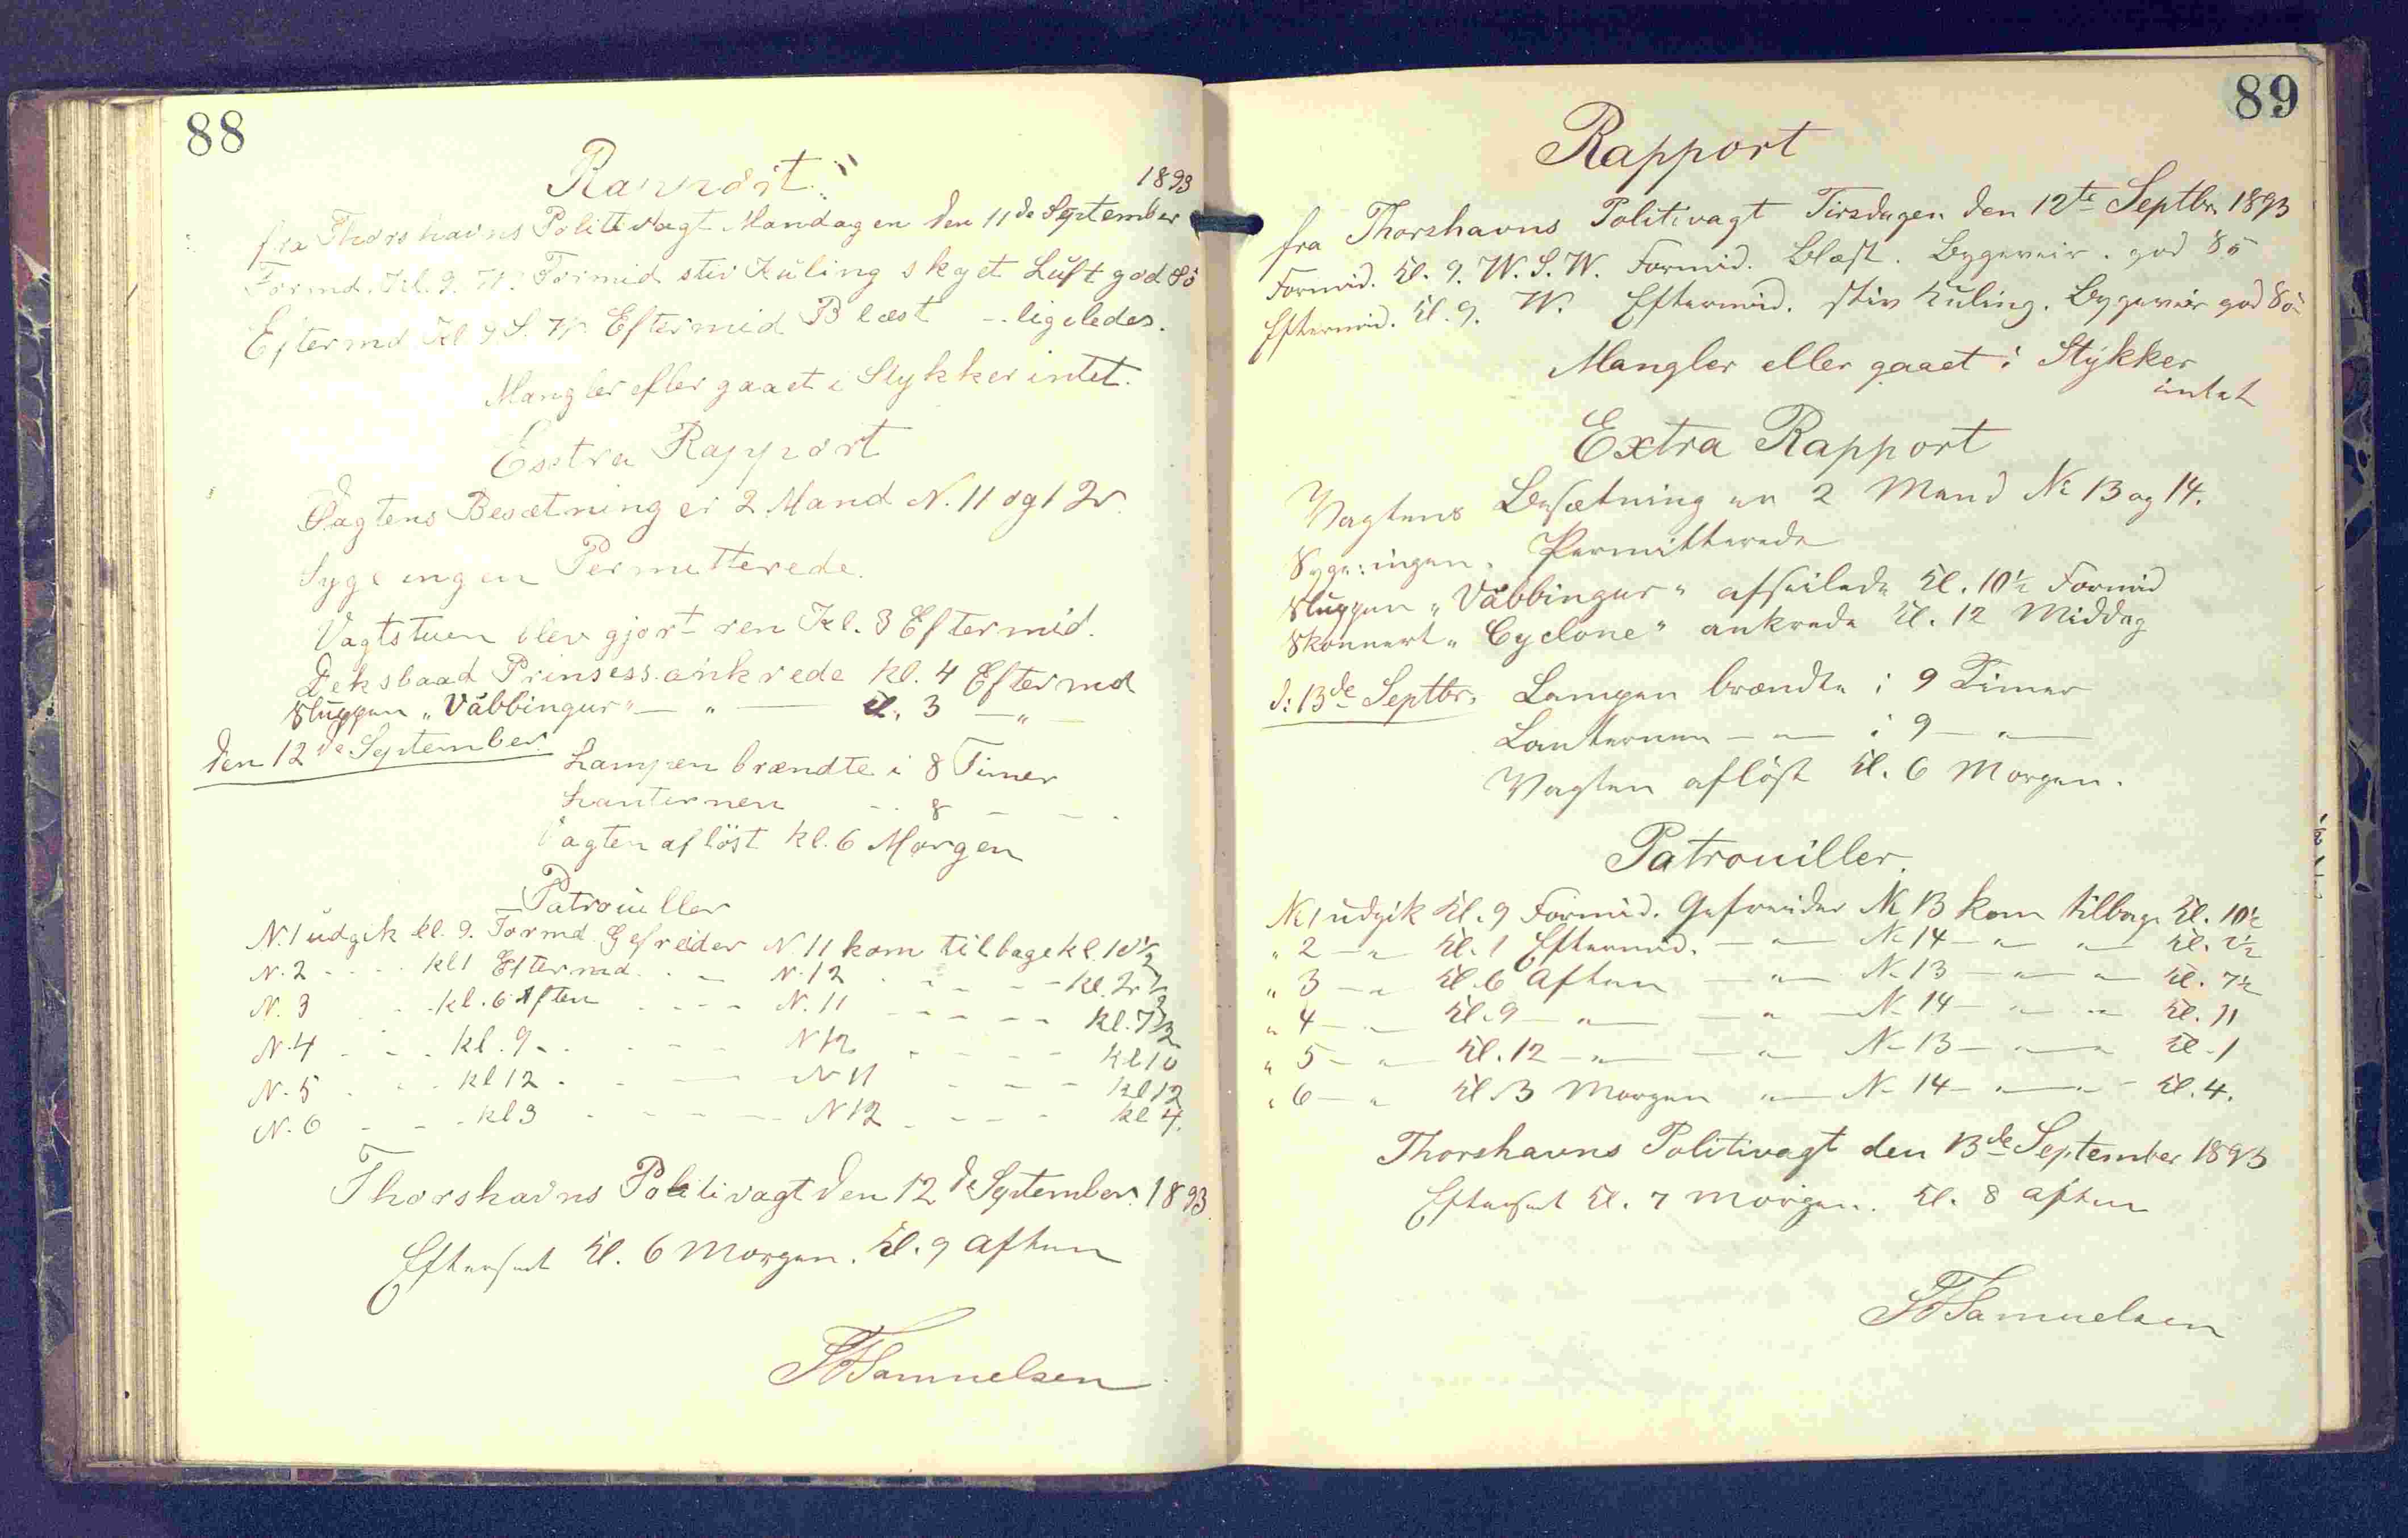 88
Rapport
1893
fra Thorshavns Politivagt Mandagen den 11de September
Formd. Kl. 9. W. Formid stiv Kuling skyet Luft god Sö
Eftermd Kl 9 S. W. Eftermid Blæst - ligeledes.
Mangler eller gaaet i Stykker intet.
Exstra Rapport
Vagtens Besætning er 2 Mand N. 11 og 12.
Syge ingen Permitterede.
Vagtstuen blev gjort ren Kl. 3 Eftermid.
Deksbaad Prinsess ankrede kl. 4 Eftermd
Sluppen „Vâbbingur" — " — Kl. 3 — " —
den 12de September. Lampen brændte i 8 Timer
Lanternen - - 8 - -
Vagten aflöst kl. 6 Morgen
Patrouller
N. 1 udgik kl. 9. Formd Gefreider N 11 kom tilbage kl 10½
N. 2 - - - kl 1 Eftermd. - - N. 12 - - - - kl. 2½
N. 3 - - kl. 6 Aften - - - N. 11 - - - - kl. 7½
N. 4 - - - kl. 9 - - - - N 12 - - - - kl 10
N. 5 - - kl 12 - - - N 11 - - - kl 12
N. 6 - - - kl 3 - - - - N 12 - - - kl 4.
Thorshavns Politivagt den 12de September 1893
Efterset Kl. 6 Morgen. Kl. 9 Aften
Samuelsen
89
Rapport
fra Thorshavns Politivagt Tirsdagen den 12te Septbr. 1893
Formid. Kl. 9. W. S. W. Formid. Blæst. Bygeveir. god Sö
Eftermid. Kl. 9. W. Eftermid. stiv Kuling. Bygeveir god Sö
Mangler eller gaaet i Stykker
intet
Extra Rapport
Vagtens Besætning er 2 Mand No 13 og 14.
Syge: ingen. Permitterede
Sluppen „Vâbbingur" afseilede Kl. 10½ Formid
Skonnert „Cyclone" ankrede Kl. 12 Middag
d: 13de Septbr. Lampen brændte i 9 Timer
Lanternen — " — i 9 — " —
Vagten aflöst Kl. 6 Morgen.
Patrouiller.
No 1 udgik Kl. 9 Formid. Gefreider No 13 kom tilbage Kl. 10½
" 2 — " Kl. 1 Eftermid. — " — No 14 — " — " — Kl. 2½
" 3 — " Kl. 6 Aften — " — No 13 — " — " Kl. 7½
" 4 — " Kl. 9 — " — — " — No 14 — " — " Kl. 11
" 5 — " — Kl. 12 — " — — " — No 13 — " — " Kl. 1
" 6 — " Kl. 3 Morgen " — No 14 — " — " — Kl. 4.
Thorshavns Politivagt den 13de September 1893
Efterset Kl. 7 Morgen. Kl. 8 Aften
Samuelsen